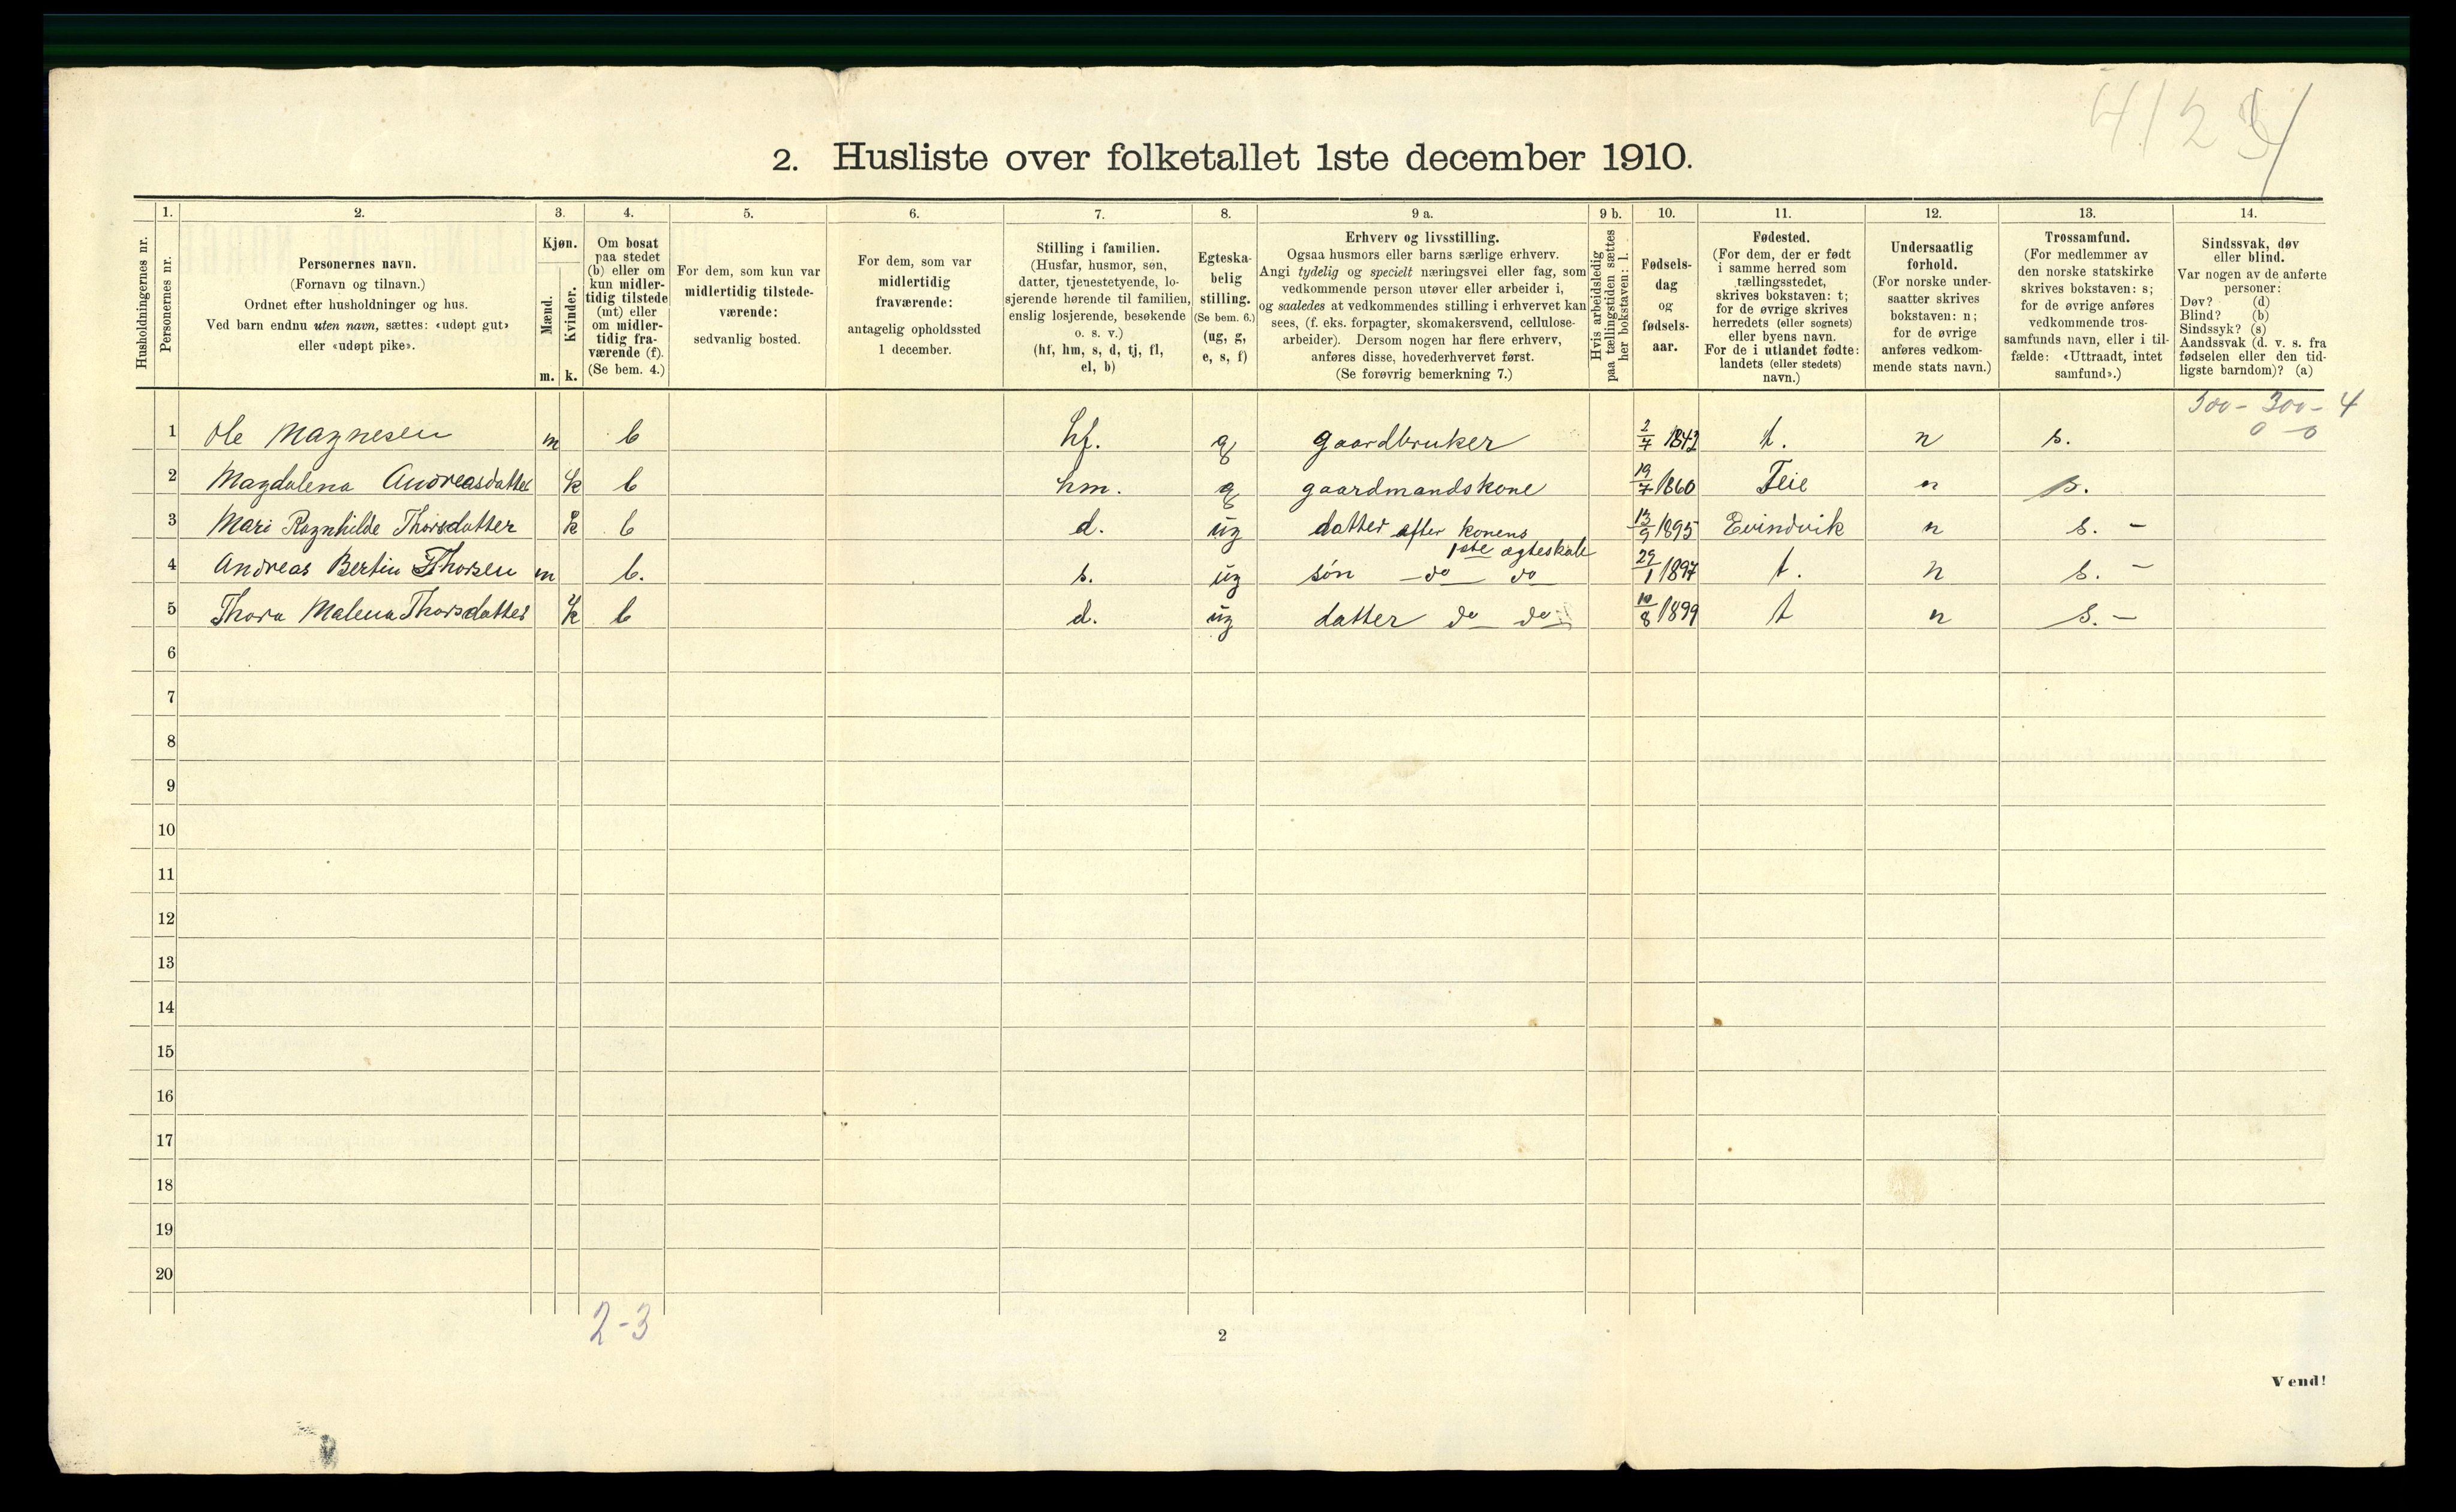 2. Husliste over folketallet 1ste december 1910.
Husholdningernes nr.
1.
Personernes nr.
2.
Personernes navn.
(Fornavn og tilnavn.)
Ordnet efter husholdninger og hus.
Ved barn endnu uten navn, sættes: «udøpt gut»
eller «udøpt pike».
3.
Kjøn.
Mænd.
Kvinder.
m. k.
4.
Om bosat
paa stedet
(b) eller om
kun midler-
tidig tilstede
(mt) eller
om midler-
tidig fra-
værende (f).
(Se bem. 4.)
5.
For dem, som kun var
midlertidig tilstede-
værende:
sedvanlig bosted.
6.
For dem, som var
midlertidig
fraværende:
antagelig opholdssted
1 december.
7.
Stilling i familien.
(Husfar, husmor, søn,
datter, tjenestetyende, lo-
sjerende hørende til familien,
enslig losjerende, besøkende
o. s. v.)
(hf, hm, s, d, tj, fl,
el, b)
8.
Egteska-
belig
stilling.
(Se bem. 6.)
(ug, g,
e, s, f)
9 a.
Erhverv og livsstilling.
Ogsaa husmors eller barns særlige erhverv.
Angi tydelig og specielt næringsvei eller fag, som
vedkommende person utøver eller arbeider i,
og saaledes at vedkommendes stilling i erhvervet kan
sees, (f. eks. forpagter, skomakersvend, cellulose-
arbeider). Dersom nogen har flere erhverv,
anføres disse, hovederhvervet først.
(Se forøvrig bemerkning 7.)
9 b.
Hvis arbeidsledig
paa tællingstiden sættes
her bokstaven: l.
10.
Fødsels-
dag
og
fødsels-
aar.
11.
Fødested.
(For dem, der er født
i samme herred som
tællingsstedet,
skrives bokstaven: t;
for de øvrige skrives
herredets (eller sognets)
eller byens navn.
For de i utlandet fødte:
landets (eller stedets)
navn.)
12.
Undersaatlig
forhold.
(For norske under-
saatter skrives
bokstaven: n;
for de øvrige
anføres vedkom-
mende stats navn.)
13.
Trossamfund.
(For medlemmer av
den norske statskirke
skrives bokstaven: s;
for de øvrige anføres
vedkommende tros-
samfunds navn, eller i til-
fælde: «Uttraadt, intet
samfund».)
14.
Sindssvak, døv
eller blind.
Var nogen av de anførte
personer:
Døv? (d)
Blind? (b)
Sindssyk? (s)
Aandssvak (d. v. s. fra
fødselen eller den tid-
ligste barndom)? (a)
500 - 300 - 4
0 0
1 Ole Magnesen m b hf. g gaardbruker 2/7 1842 t. n s.
2 Magdalena Andreasdatter k b hm. g gaardmandskone 19/7 1860 Feie n s.
3 Mari Ragnhilde Thorsdatter k b d. ug datter after konens 13/9 1895 Evindvik n s. -
1ste ægteskab
4 Andreas Bertin Thorsen m b. s. ug søn - do do 29/1 1897 t. n s. -
5 Thora Malena Thorsdatter k b d. ug datter do do 10/8 1899 t n s. -
6
7
8
9
10
11
12
13
14
15
16
17
18
19
20
2-3
2
Vend!